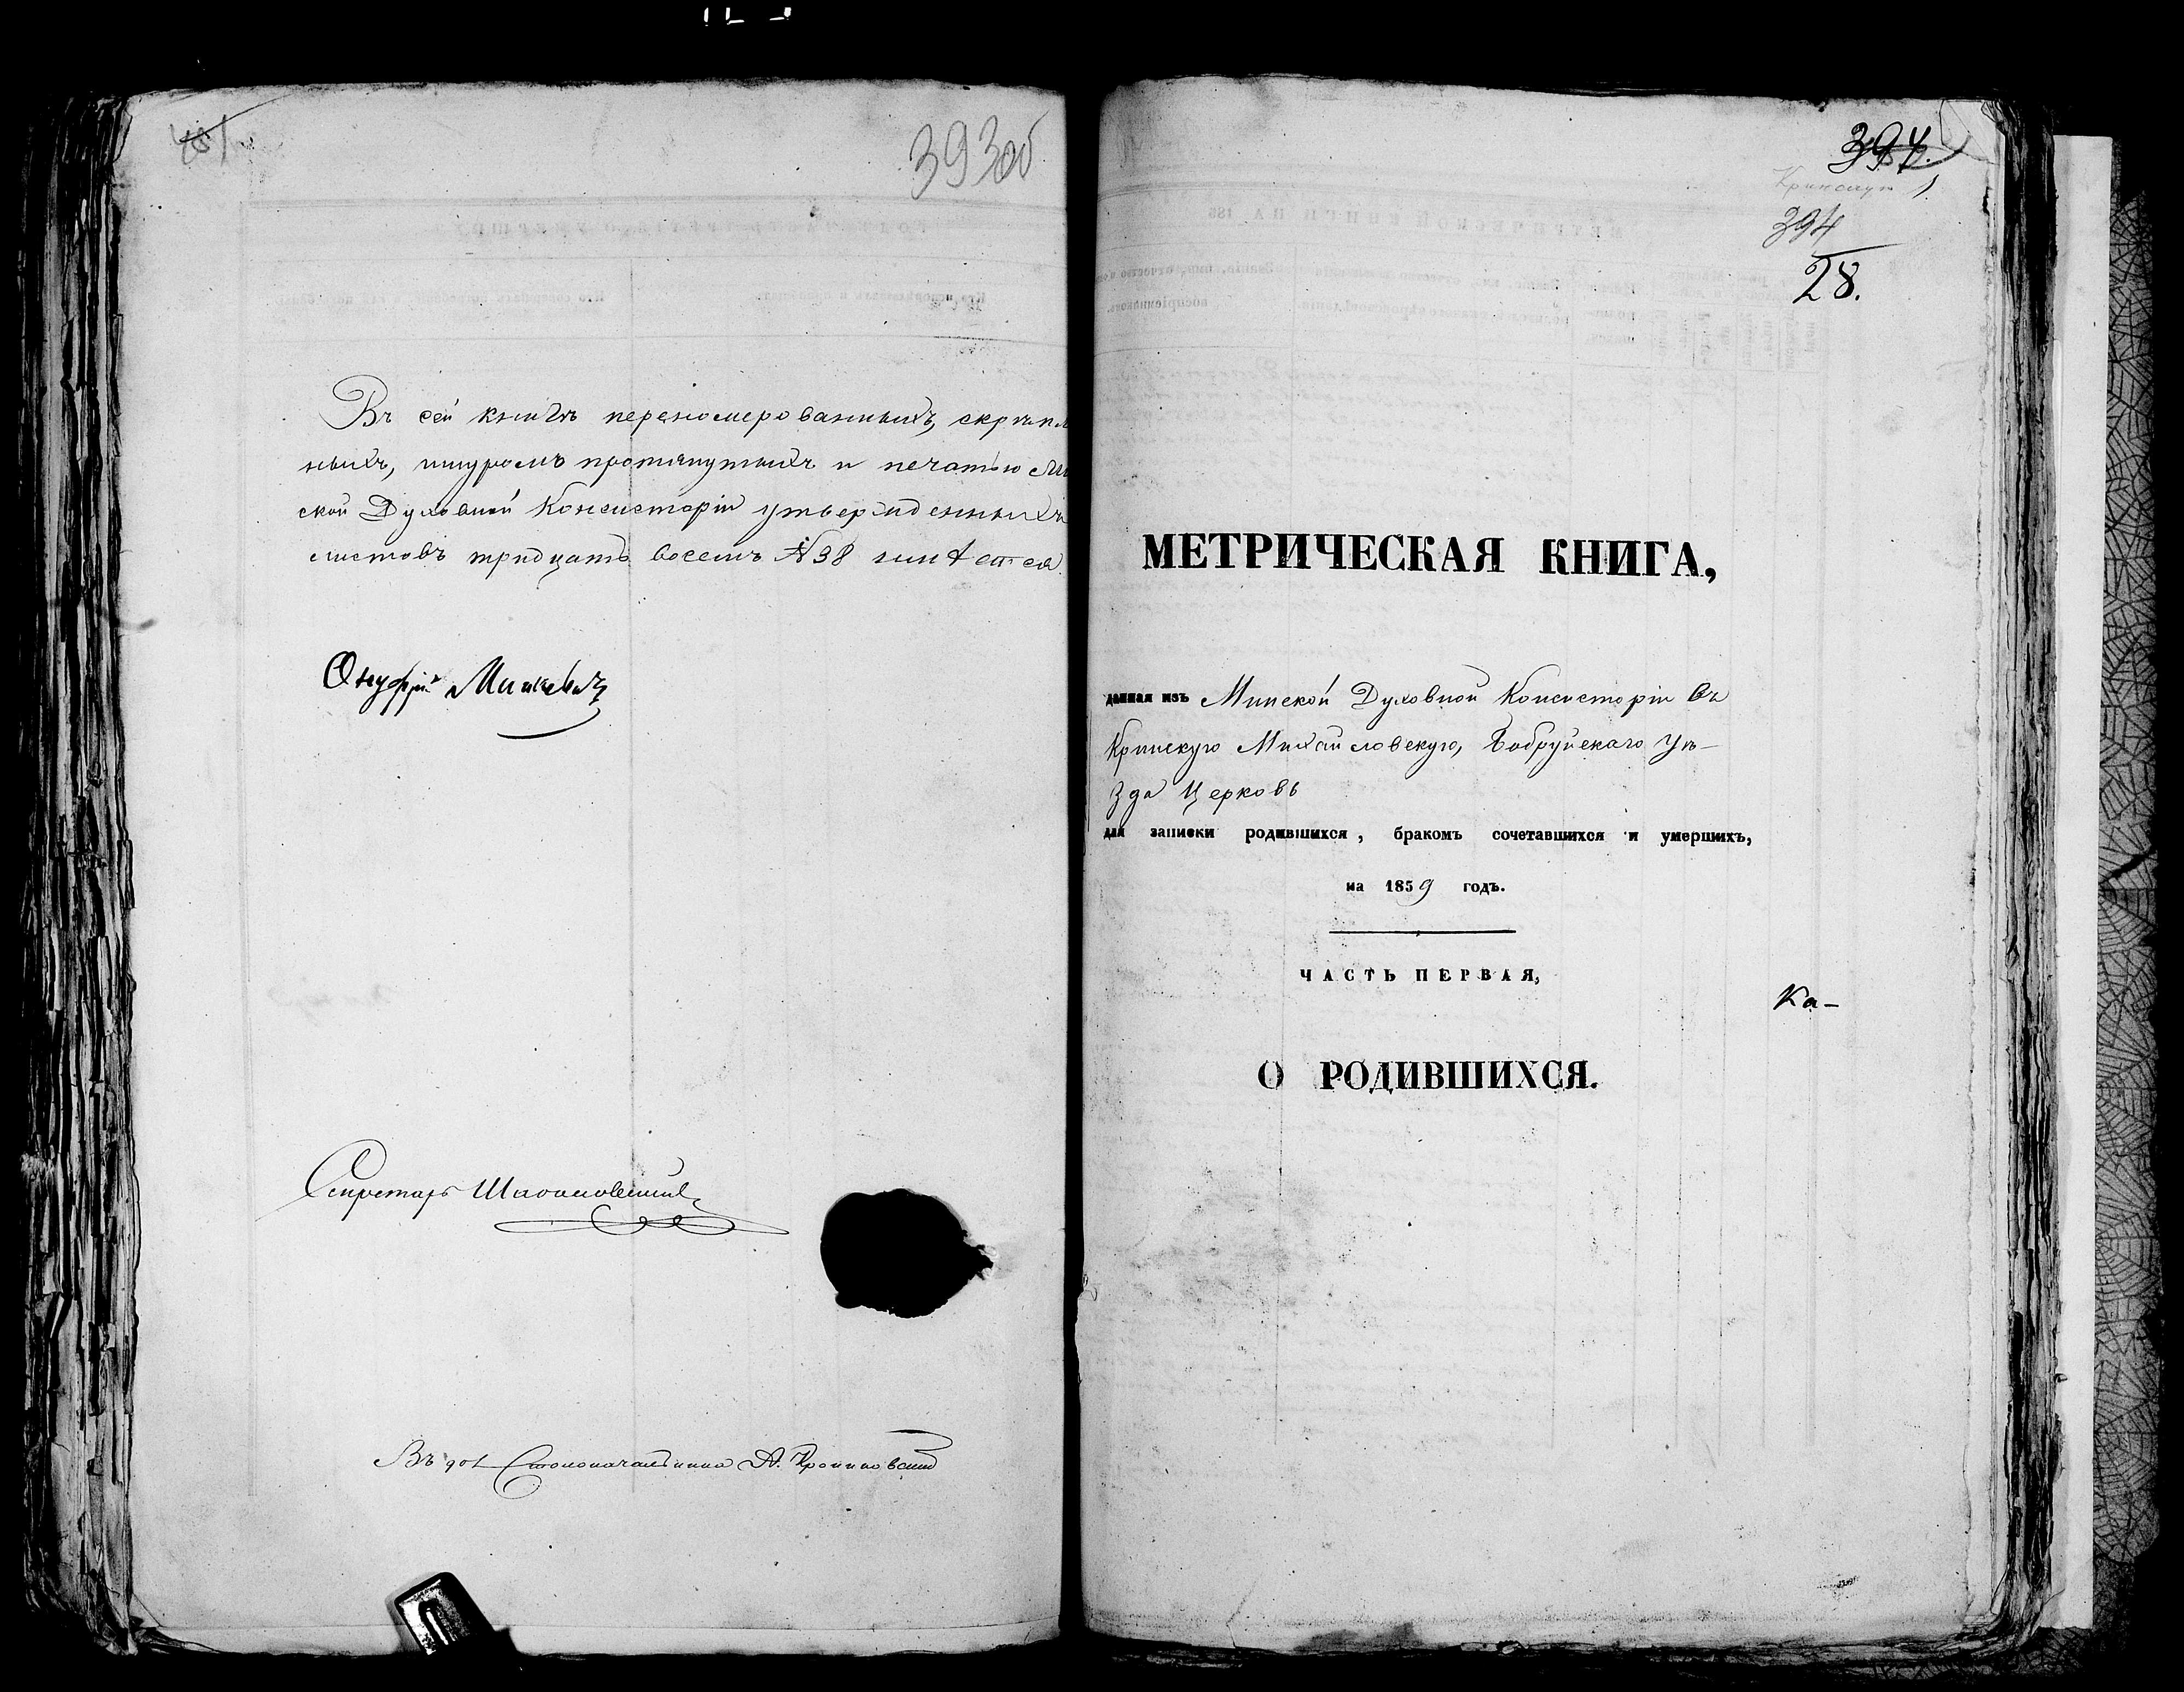 393об
Въ сей книгѣ перенумерованныхъ, скрѣпл
ныхъ, шнуромъ протянутыхъ и печатью Ми
ской Духовной Консисторіи утвержденныхъ
листовъ тридцать восемь №38 имѣется
Онуфрій
Секретарь
Въ дол Столоначальника А.
394.
394
28.
МЕТРИЧЕСКАЯ КНИГА,
данная изъ Минской Духовной Консисторіи въ
Кринскую Михайловскую, Бобруйскаго Уѣ-
зда Церковь
для записки родившихся, бракомъ сочетавшихся и умершихъ,
на 1859 годъ.
ЧАСТЬ ПЕРВАЯ,
Ка-
О РОДИВШИХСЯ.